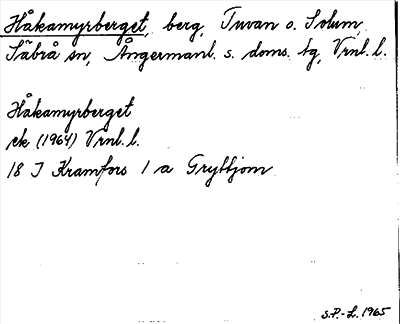 Håkamyrberget, berg, Tuvan o. Solum,
Säbrå sn, Ångermanl. s. doms. tg, Vrnl. l.
Håkamyrberget
ek (1964) Vrnl. l.
18 I Kramfors 1 a Gryttjom
S.P.-L. 1965